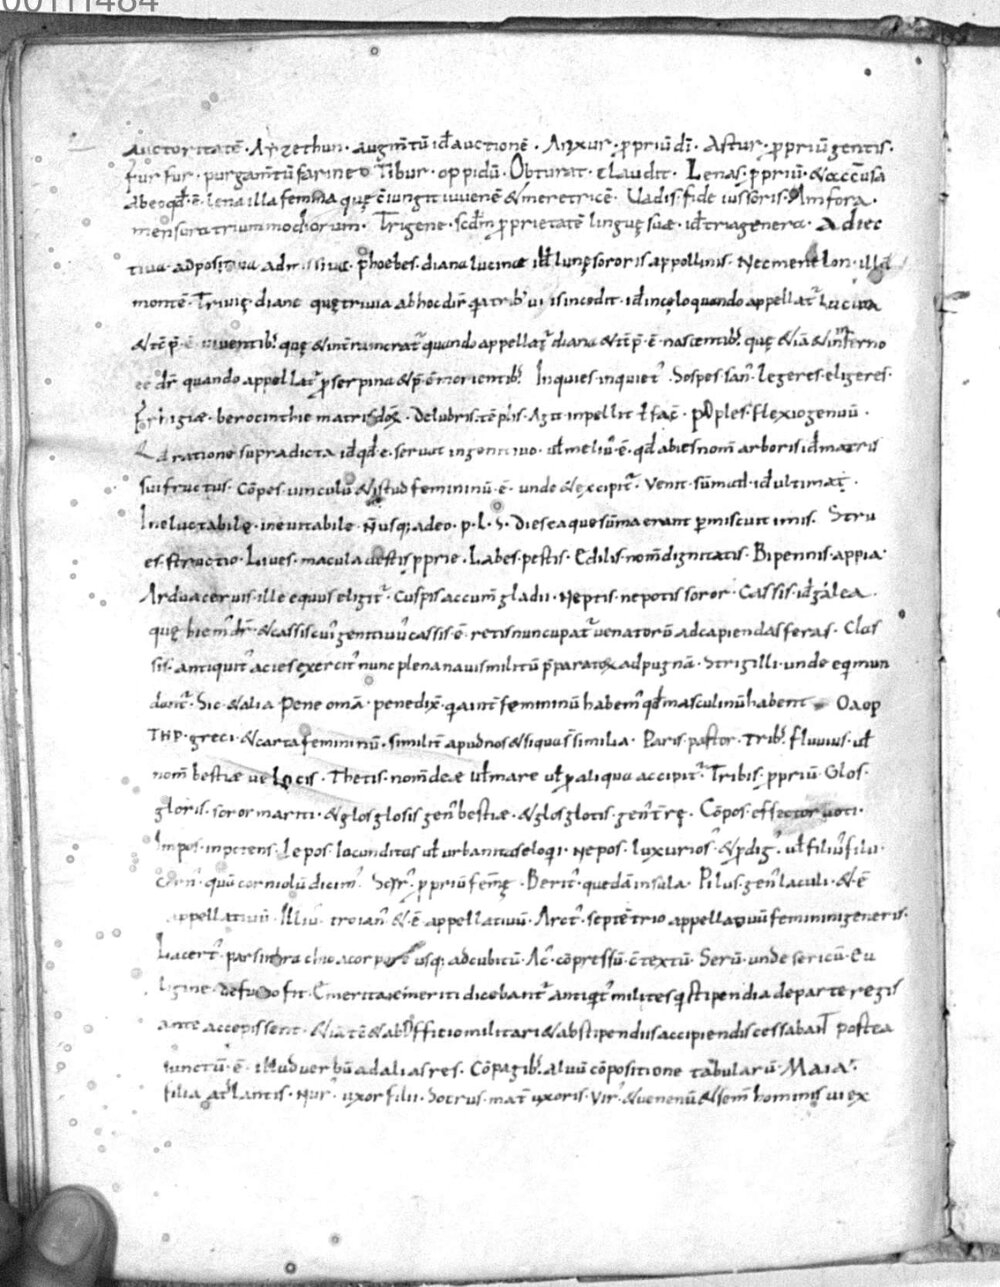 00111484
auctoritatē · Ayzethun · augm̄tū id̄ auctionē · Anxur · ppriū dī · Astur · ppriū gentis ·
furfur · purgam̄tū farine · Tibur · oppidū · Obturat · claudit · Lenas · ppriū · & accusa
Ab eo qđ ē lena illa femina quę ciungit iuuenē & meretricē · Uadis · fide iussoris · Amfora ·
mensura trium modiorum · Trigene · scđm pprietatē linguę suæ · id̄ tria genera · Adiec
tiua · adpositiua admissiua · phoebes · diana lucinæ ił lunę sororis appollinis · Nec mente lon · illā
montē · Triuię · dianę quę triuia ab hoc dr̄ qa trib' uiis incedit · id in cęlo quando appellat' Lucina
& tēp̄ ē uiuentib' quę & in tr̄is uncrat' quando appellat' diana & tēp̄ ē nascentib' quę & iā & in inferno
ee dr̄ quando appellat' pserpina & p̄ ē morientib' Inquies inquiet' · Sospes san' · legeres · eligeres ·
Frigiæ · berecinthie matris doꝝ · Delubris · tēplis · Agit inpellit ł fac̄ · poples · flexio genuū ·
Ł d ratione supradicta id qđ e seruat in genitiuo · uł meliu' ē · qđ abies nom̄ arboris id̄ matris
sui fructus · Cōpes uinculū & istud femininū ē · unde & excipit' · Venit sūma id̄ ultima ·
Ineluctabile · ineuitabile · N̄ usq; adeo · p · L · S · Dies ea que sūma erant pmiscuit imis · Stru
es · structio · Lues · macula uestis pprie · Labes · pestis · Edilis · nom̄ dignitatis · Bipennis · appia ·
Ardua ceruis · ille equus eligit' · Cuspis accum̄ gladii · Neptis · nepotis soror · Cassis · id̄ gálea ·
quę hiem' dr̄ · & cassis cui' genitiuū cassis ē · retis nuncupat' uenatorū ad capiendas feras · Clas
sis · antiquit' acies exercit' nunc plena nauis militū pparatoꝝ ad pugnā · Strigilli · unde equi mun
dant' · Sic & alia Pene omā · pene dix̄ · qa int̄ femininū habem' qđ masculinū habent Oaop
THP · greci · & carta femininū · similit' apud nos & siqua s̄ similia · Paris · pastor · Trib' · fluuius · uł
nom̄ bestiæ uelocis · Thetis · nom̄ deæ uł mare uł p aliqua accipit' · Tribis · ppriū · Glos ·
gloris · soror mariti · & glos glosis gen' bestiæ · & glos glotis · gen' t̄rę · Cōpos · effector uoti ·
Impos · inpotens · Lepos · iocunditas uł urbanitas eloqi · Nepos · luxurios' & pdig' · uł filiu' filii ·
Corn' · quū corniolū dicim' · Scyr' · ppriū femę · Berit' quedā insula · Pilus · gen' iaculi · & ē
appellatiuū · Illiu' troian' & ē appellatiuū · Arct' · septētrio appellatiuū feminini generis ·
Lacert' · pars in brachio a corpore usq; ad cubitū · Ac' cōpressū · c̄textū · Serū · unde sericū · Eu
ligine · de fumo fit · Emerita · emeriti dicebant' antiqit' milites q stipendia de parte regis
ante accepissent · & iā tē & ab offitio militari & ab stipendiis accipiendis cessabant postea
iunctū ē illud uerbū ad alias res · Cōpagib' aluū cōpositione tabularū · Maia ·
filia athlantis · Nur' · uxor filii · Socrus · mat' uxoris · Vir' · & uenenū & sem̄ hominis ui ex